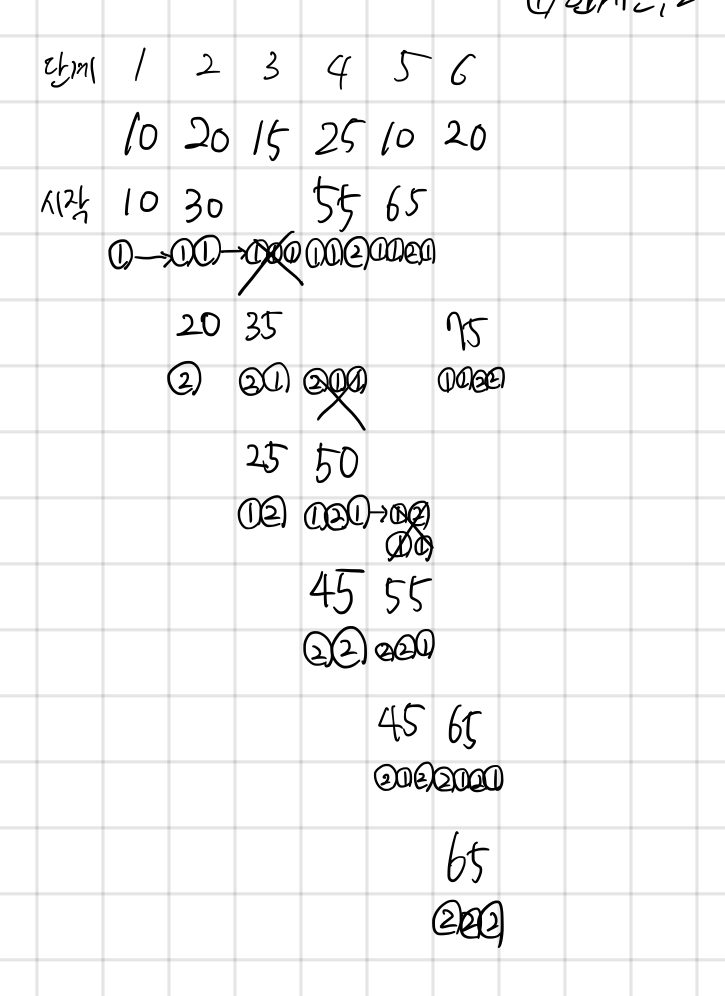 단계 1 2 3 4 5 6
10 20 15 25 10 20
시작 10 30 55 65
① → ①① → ①①① ①①② ①①②①
20 35 75
② ②① ②①① ①①②②
25 50
①② ①②① → ①②
①①
45 55
②② ②②①
45 65
②①② ②①②①
65
②②②